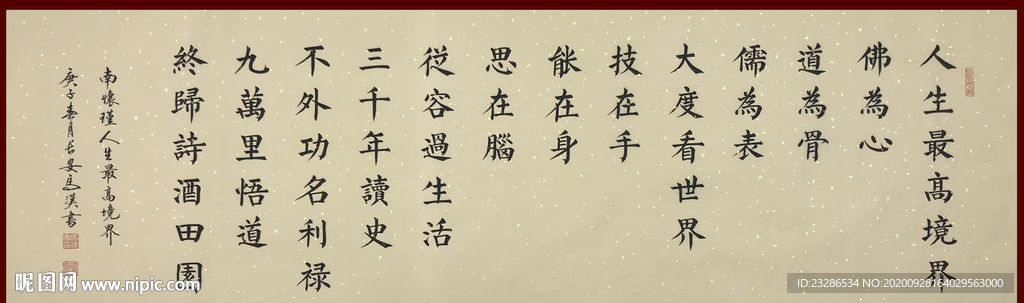 人生最高境界
佛為心
道為骨
儒為表
大度看世界
技在手
能在身
思在腦
從容過生活
三千年讀史
不外功名利禄
九萬里悟道
終歸詩酒田園
南懷瑾人生最高境界
庚子春月长安馬漢書
昵图网 www.nipic.com
ID:23286534 NO:20200928164029563000